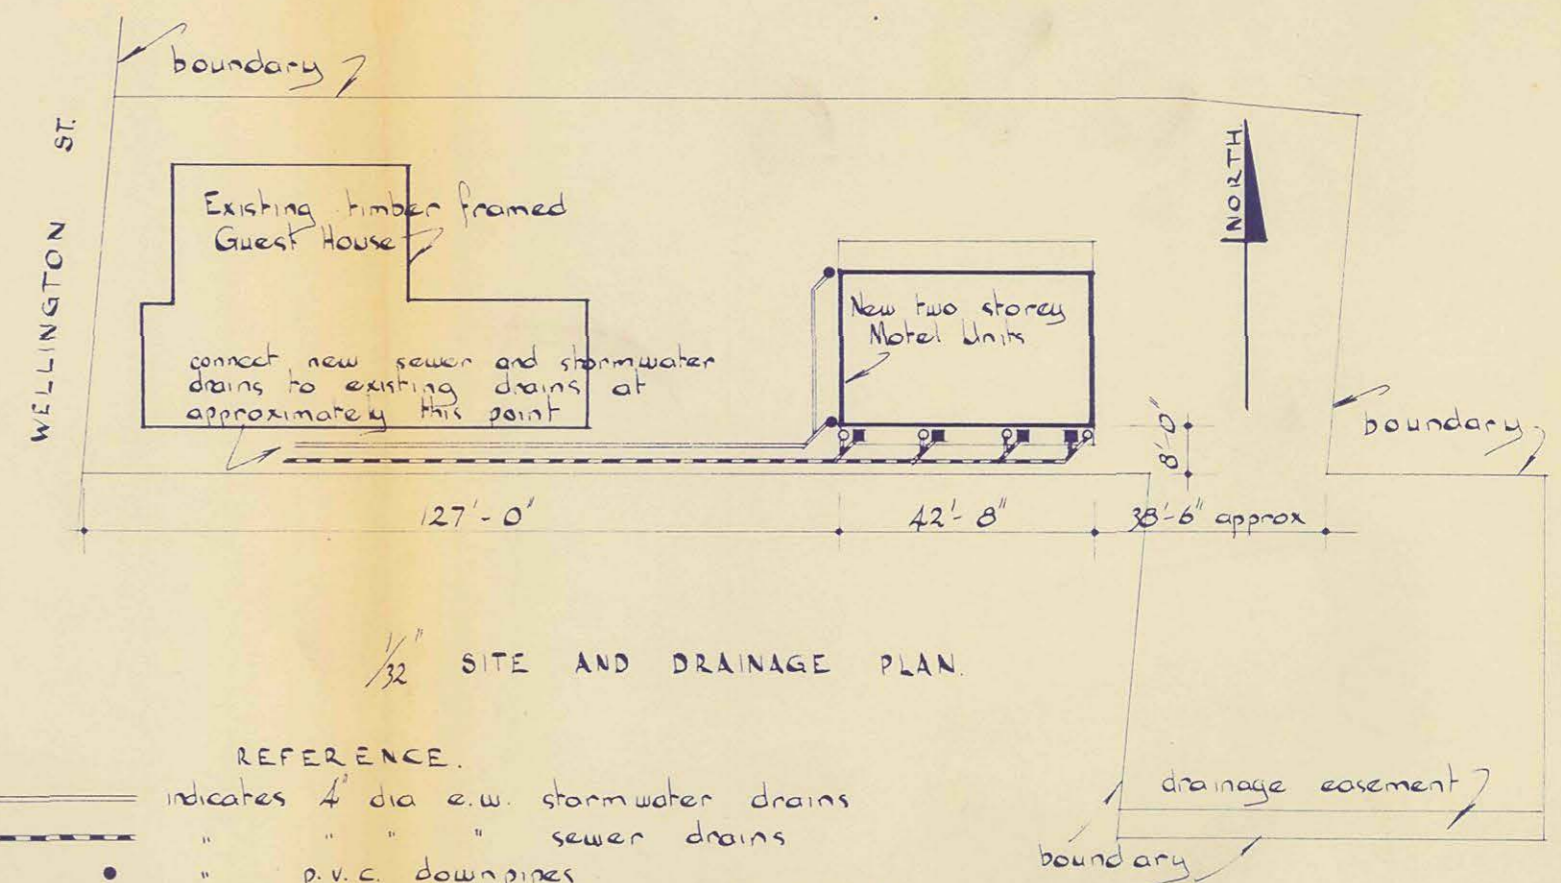 boundary
WELLINGTON ST.
NORTH
Existing timber framed
Guest House
New two storey
Motel Units
connect new sewer and stormwater
drains to existing drains at
approximately this point
boundary
8'-0"
127'-0"
42'-8"
38'-6" approx
1/32" SITE AND DRAINAGE PLAN.
REFERENCE.
indicates 4" dia e.w. stormwater drains
" " " " sewer drains
" p.v.c. downpipes
drainage easement
boundary